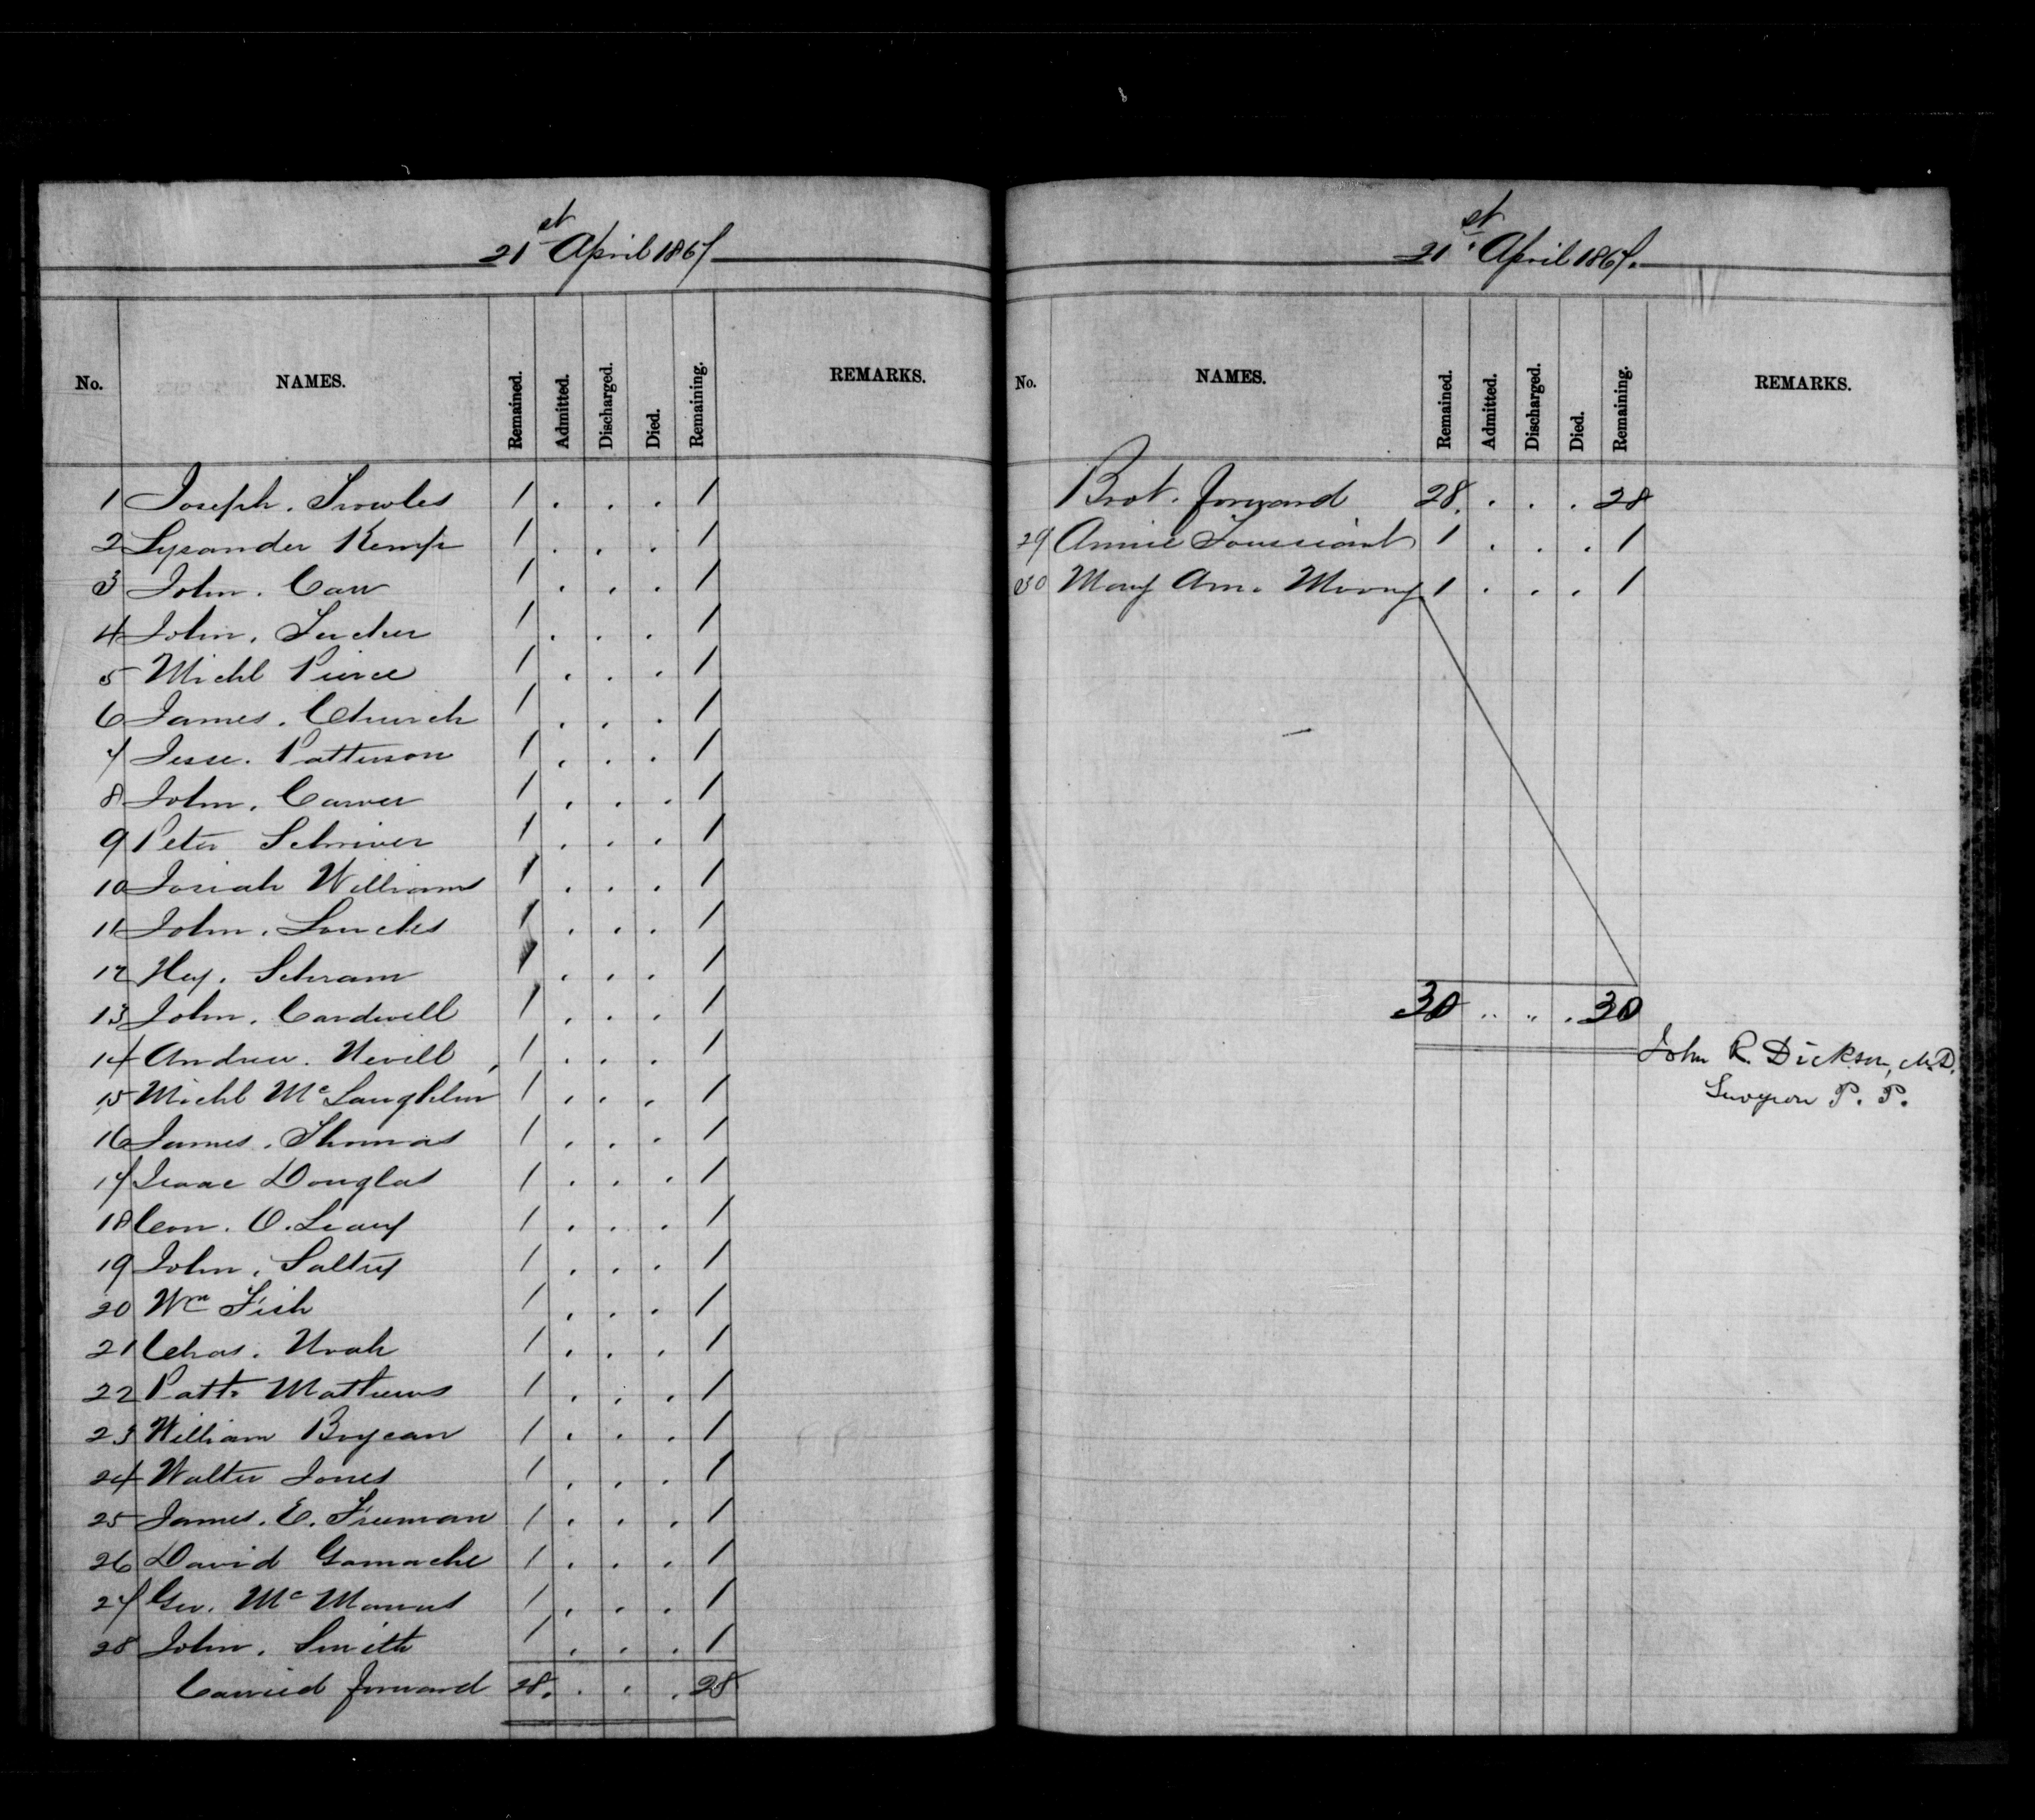 21st April 1867
No. NAMES. Remained. Admitted. Discharged. Died. Remaining. REMARKS.
1 Joseph. Trowles 1 . . . 1
2 Lysander Kemp 1 . . . 1
3 John. Carr 1 . . . 1
4 John. 1 . . . 1
5 Michl Pierce 1 . . . 1
6 James. Church 1 . . . 1
7 Jesse. Patterson 1 . . . 1
8 John. Carver 1 . . . 1
9 Peter Schriver 1 . . . 1
10 Josiah Williams 1 . . . 1
11 John. Loucks 1 . . . 1
12 Hey. Schram 1 . . . 1
13 John. Cardwell 1 . . . 1
14 Andrew. Nevill 1 . . . 1
15 Michl McLaughlin 1 . . . 1
16 James. Thomas 1 . . . 1
17 Isaac Douglas 1 . . . 1
18 Con. O. Leary 1 . . . 1
19 John. Saltry 1 . . . 1
20 Wm Fish 1 . . . 1
21 Chas. Noah 1 . . . 1
22 Patk. Mathews 1 . . . 1
23 William Brycan 1 . . . 1
24 Walter Jones 1 . . . 1
25 James. E. Freeman 1 . . . 1
26 David Gamache 1 . . . 1
27 Geo. McManus 1 . . . 1
28 John. Smith 1 . . . 1
Carried forward 28. . . . 28
21st. April 1867.
No. NAMES. Remained. Admitted. Discharged. Died. Remaining. REMARKS.
Brot. forward 28. . . . 28
29 Annie Toussiant 1 . . . 1
30 Mary Ann. Moony 1 . . . 1
30 .. .. . 30
John R. Dickson, M.D.
Surgeon P. P.